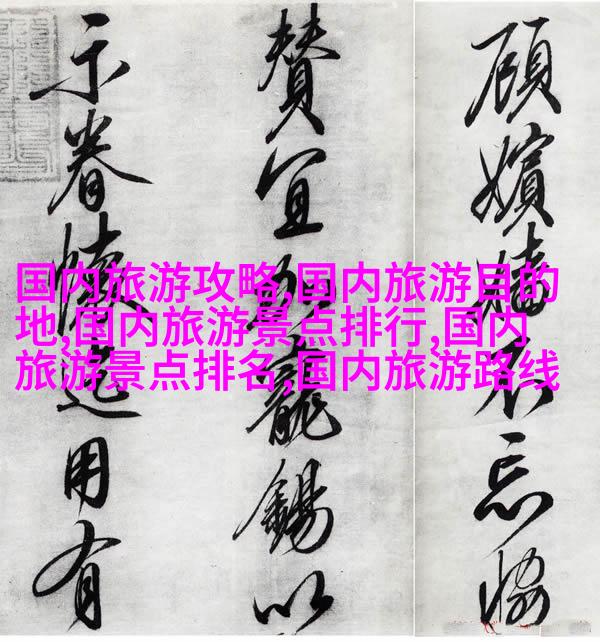 国内旅游攻略,国内旅游目的
地,国内旅游景点排行,国内
旅游景点排名,国内旅游路线
顧嬪嬙不忘
賛宜寵錫以
示眷用有